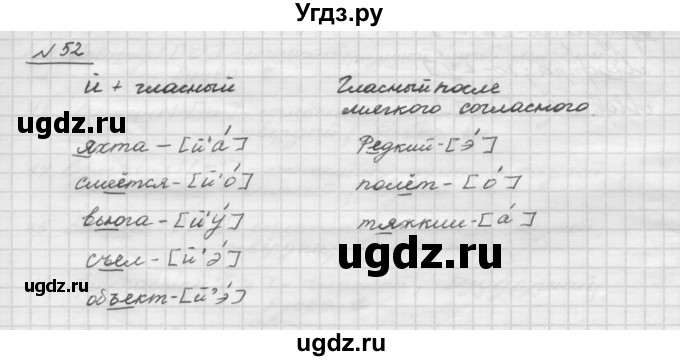 Угдз.ру
№ 52
й + гласный
Гласный после
мягкого согласного.
ugdz.ru
ugdz.ru
яхта - [й'á]
Редкий - [э́]
смеётся - [й'о́]
полёт - [о́]
вьюга - [й'у́]
тяжкий - [á]
съел - [й'э́]
объект - [й'э́]
ugdz.ru
ugdz.ru
ugdz.ru
ugdz.ru